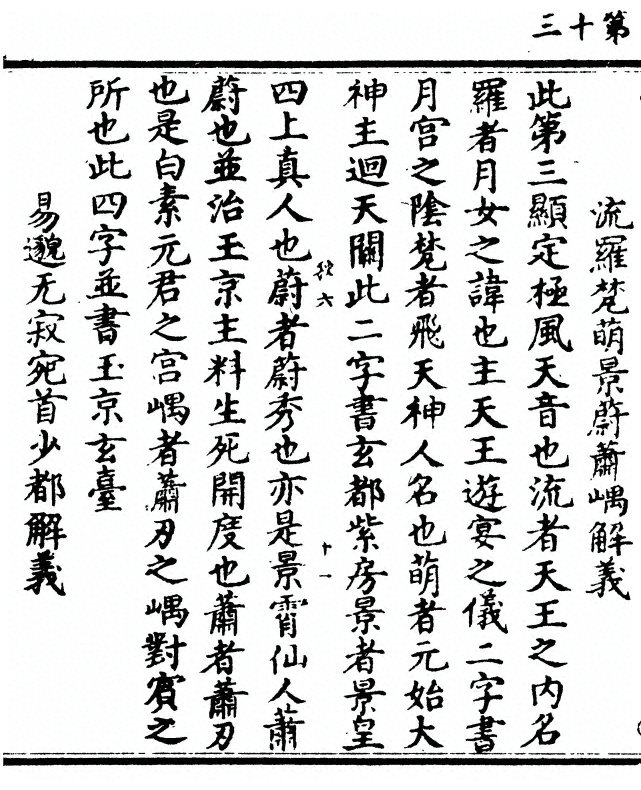 第十三
流羅梵萌景蔚蕭嵎解義
此第三顯定極風天音也流者天王之内名
羅者月女之諱也主天王遊宴之儀二字書
月宫之陰梵者飛天神人名也萌者元始大
神主迴天關此二字書玄都紫房景者景皇
四上真人也蔚者蔚秀也亦是景霄仙人蕭
蔚也並治王京主料生死開度也蕭者蕭刃
也是白素元君之宫嵎者蕭刃之嵎對賓之
所也此四字並書玉京玄臺
易邈无寂宛首少都解義
十一